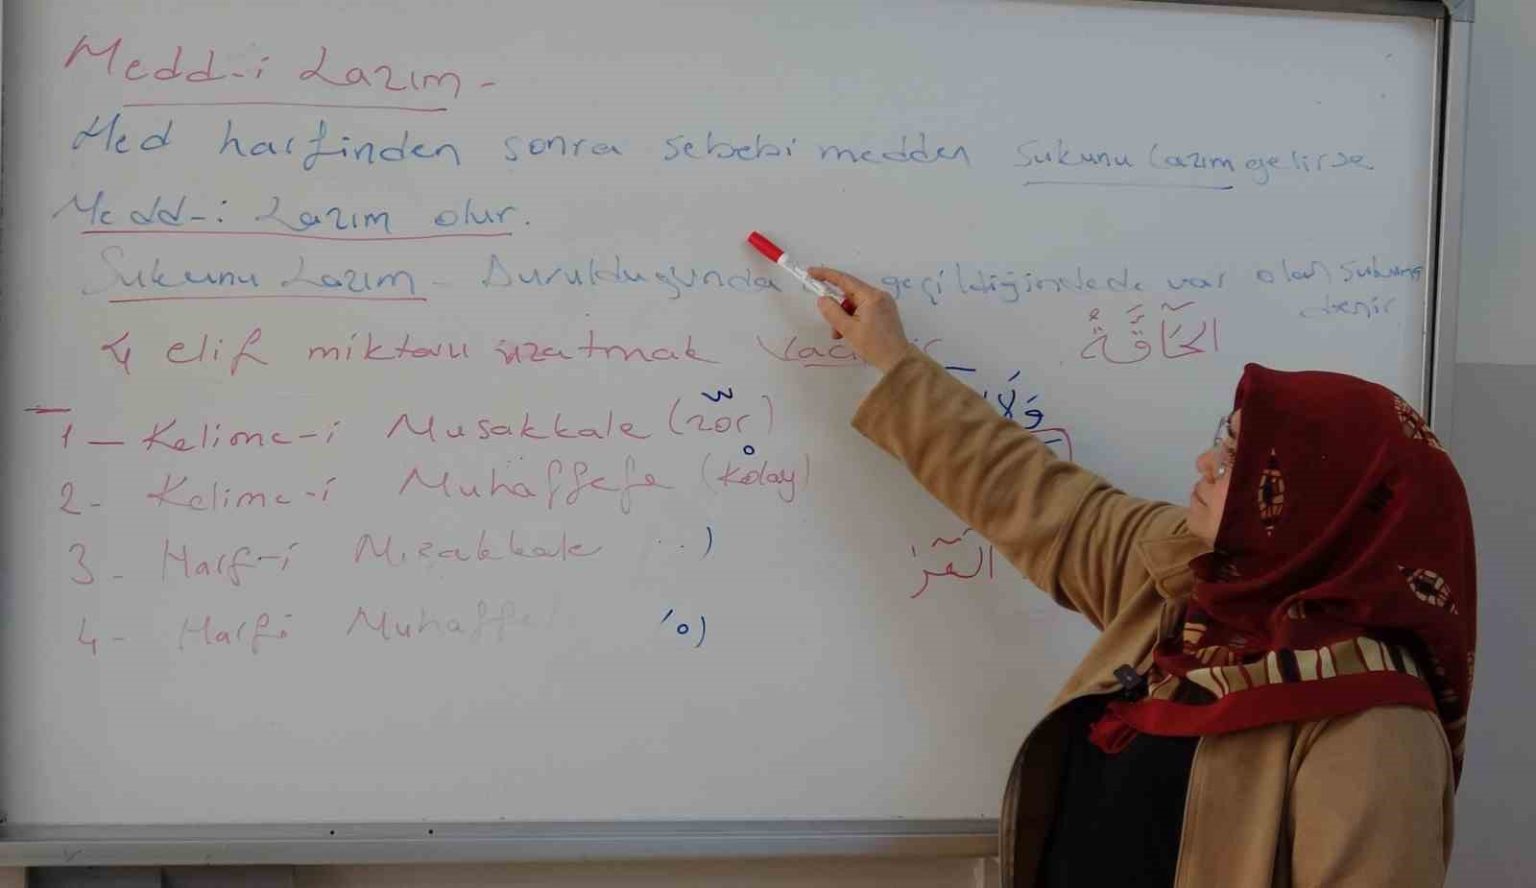 Medd-i Lazım -
Med harfinden sonra sebebi medden sukunu lazım gelirse
Medd-i Lazım olur.
Sukunu Lazım - Durulduğunda geçildiğindede var olan sukuna
denir
4 elif miktarı uzatmak
اَلْحَٓاقَّةُ
وَلَا
1 - Kelime-i Musakkale (zor)
2- Kelime-i Muhaffefe (kolay)
3- Harf-i Musakkale
4- Harfi Muhaffe
الٓمٓرٰ